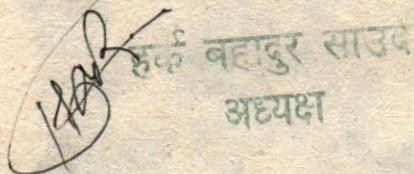 हर्क बहादुर साउद
अध्यक्ष